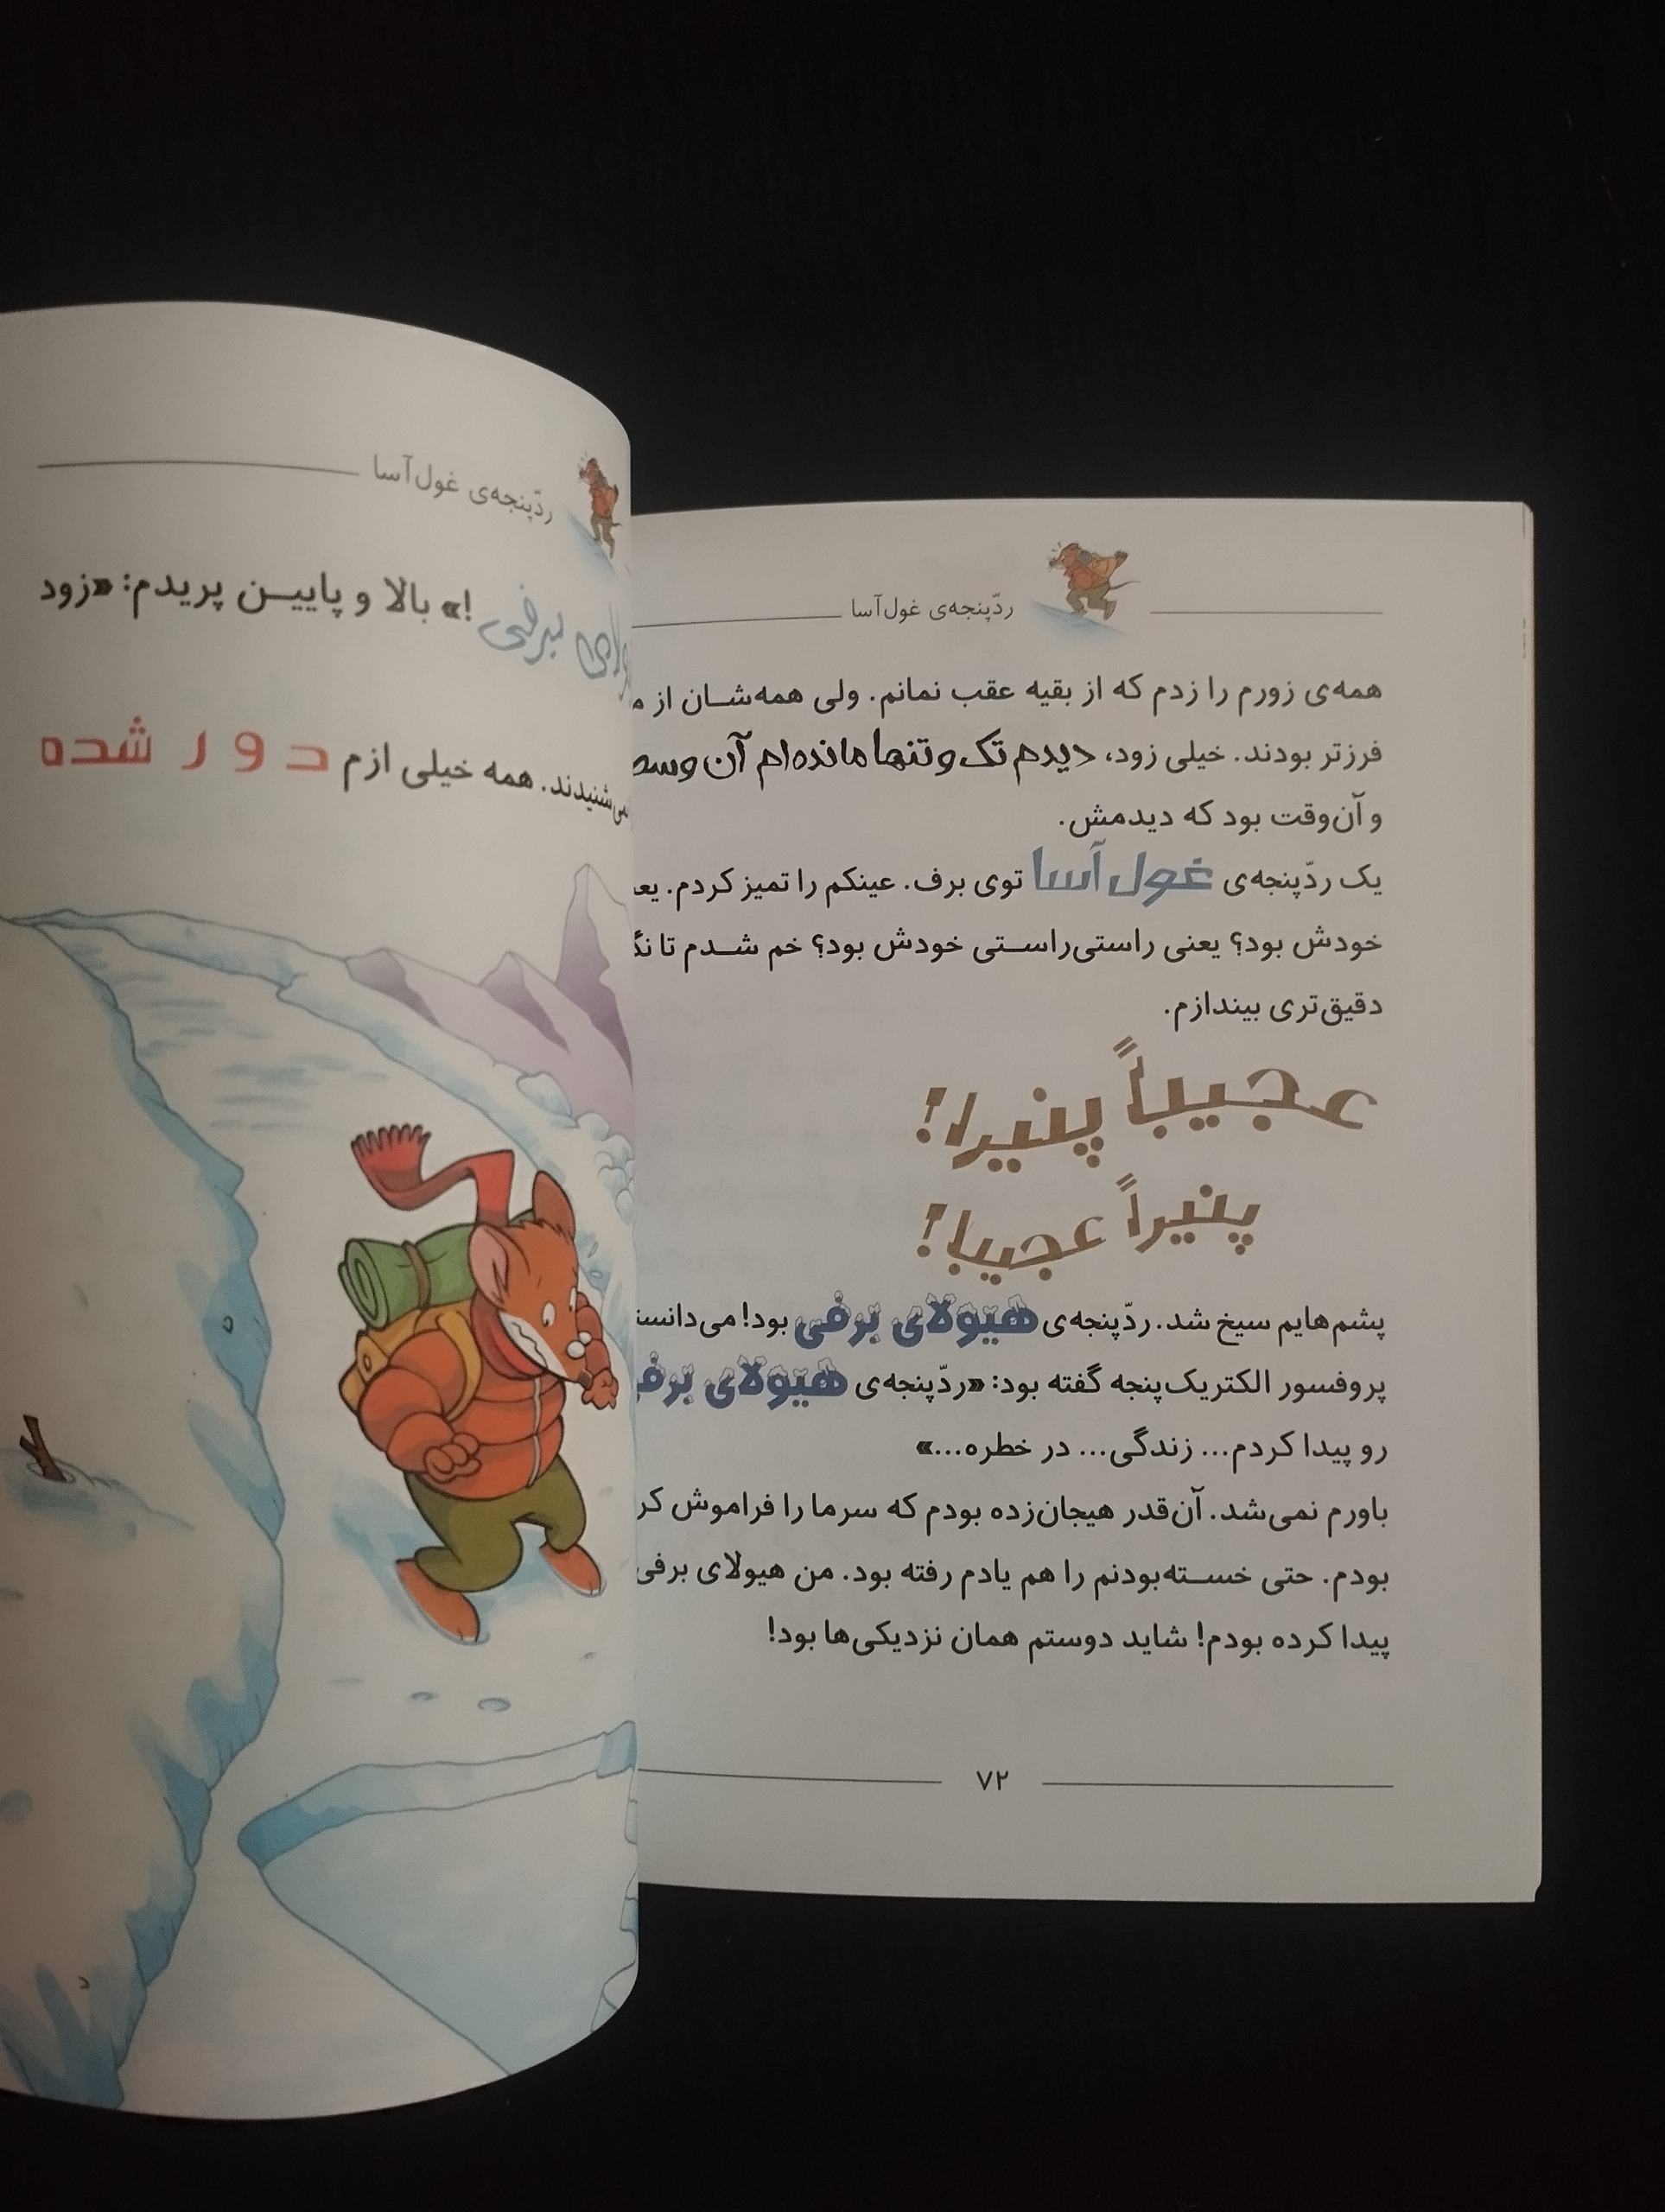 ردّپنجه‌ی غول‌آسا
همه‌ی زورم را زدم که از بقیه عقب نمانم. ولی همه‌شان از
فرزتر بودند. خیلی زود، دیدم تک و تنها مانده‌ام آن
و آن‌وقت بود که دیدمش.
یک ردّپنجه‌ی غول‌آسا توی برف. عینکم را تمیز کردم.
خودش بود؟ یعنی راستی‌راستی خودش بود؟ خم شدم تا
دقیق‌تری بیندازم.
عجیباً پنیرا!
پنیراً عجیبا!
پشم‌هایم سیخ شد. ردّپنجه‌ی هیولای برفی بود!
پروفسور الکتریک‌پنجه گفته بود: «ردّپنجه‌ی هیولای
رو پیدا کردم... زندگی... در خطره...»
باورم نمی‌شد. آن‌قدر هیجان‌زده بودم که سرما را فراموش
بودم. حتی خسته‌بودنم را هم یادم رفته بود. من هیولای برفی
پیدا کرده بودم! شاید دوستم همان نزدیکی‌ها بود!
۷۲
ردّپنجه‌ی غول‌آسا
برفی!» بالا و پایین پریدم: «زود
همه خیلی ازم دور شده